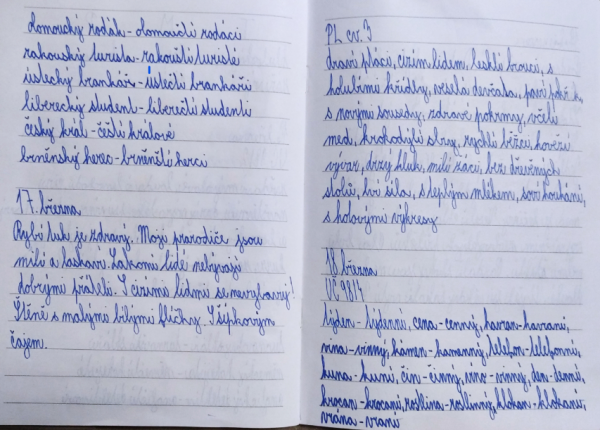 olomoucký rodák - olomoučtí rodáci
rakouský turista - rakouští turisté
ústecký brankář - ústečtí brankáři
liberecký student - liberečtí studenti
český král - čeští králové
brněnský herec - brněnští herci
17. března
Rybí tuk je zdravý. Moji prarodiče jsou
milí a laskaví. Lakomí lidé nebývají
dobrými přáteli. S cizími lidmi se nevybavuj!
Štěně s malými bílými flíčky. S šípkovým
čajem.
PL cv. 3
draví ptáci, cizím lidem, lesklí brouci, s
holubími křídly, veselá děvčata, paví
s novými sousedy, zdravé pokrmy, včelí
med, krokodýlí slzy, rychlí běžci, hovězí
vývar, drzý kluk, milí žáci, bez dřevěných
stolů, lví síla, s teplým mlékem, soví houkání,
s hotovými výkresy
18. března
UČ 98/4
týden - týdenní, cena - cenný, havran - havraní,
vina - vinný, kámen - kamenný, telefon - telefonní,
kuna - kuní, čin - činný, víno - vinný, den - denní,
krocan - krocaní, rostlina - rostlinný, klokan - klokaní,
vrána - vraní